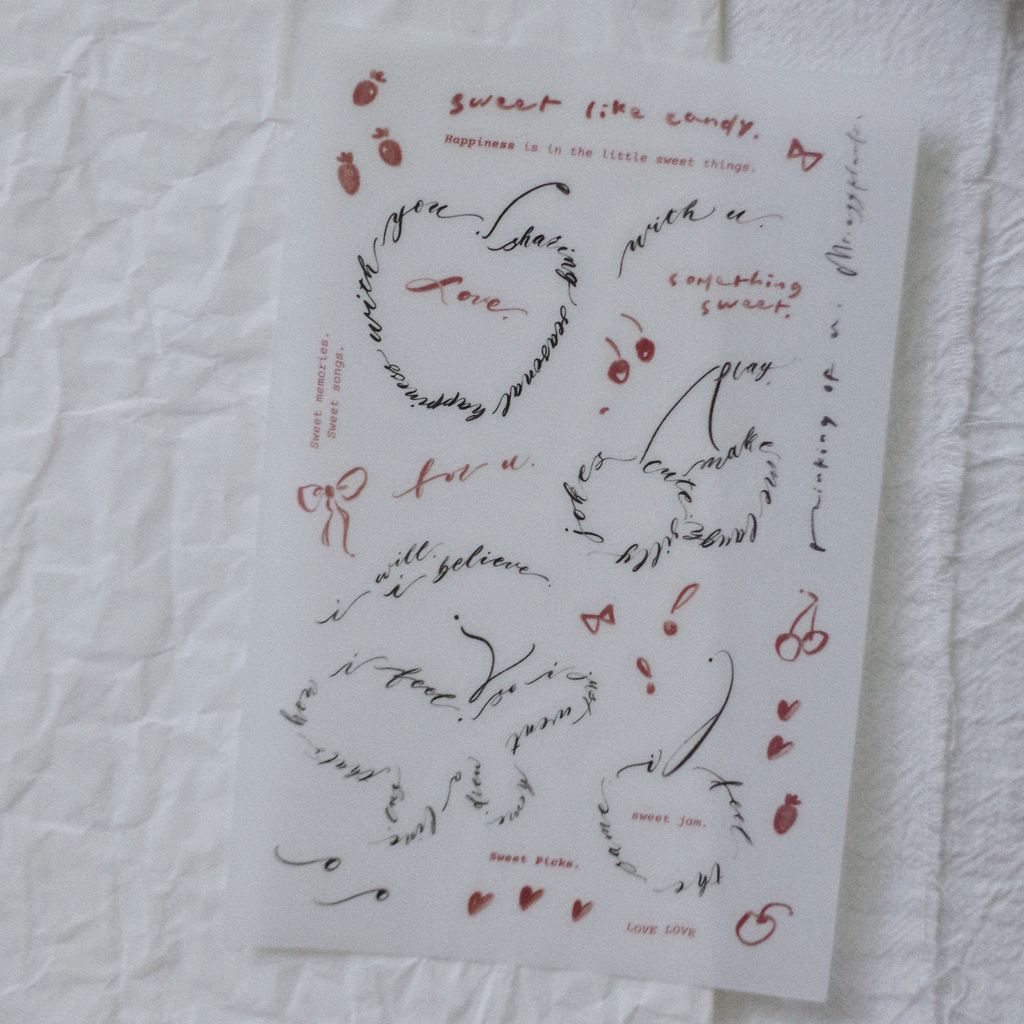 sweet like candy.
Happiness is in the little sweet things.
sharing seasonal happiness with you.
Love.
with u.
something
sweet.
Sweet memories.
Sweet songs.
thinking of u.
play.
so cute silly
make me laugh
for u.
i will.
i believe.
i feel
i just want
love
i feel the same
sweet jam.
Sweet Picks.
LOVE LOVE